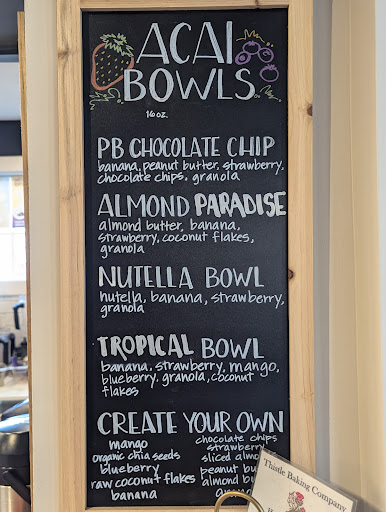 ACAI
BOWLS
16 oz.
PB CHOCOLATE CHIP
banana, peanut butter, strawberry,
chocolate chips, granola
ALMOND PARADISE
almond butter, banana,
strawberry, coconut flakes,
granola
NUTELLA BOWL
nutella, banana, strawberry,
granola
TROPICAL BOWL
banana, strawberry, mango,
blueberry, granola, coconut
flakes
CREATE YOUR OWN
mango
organic chia seeds
blueberry
raw coconut flakes
banana
chocolate chips
strawberry
sliced almo
peanut bu
almond bu
Thistle Baking Company